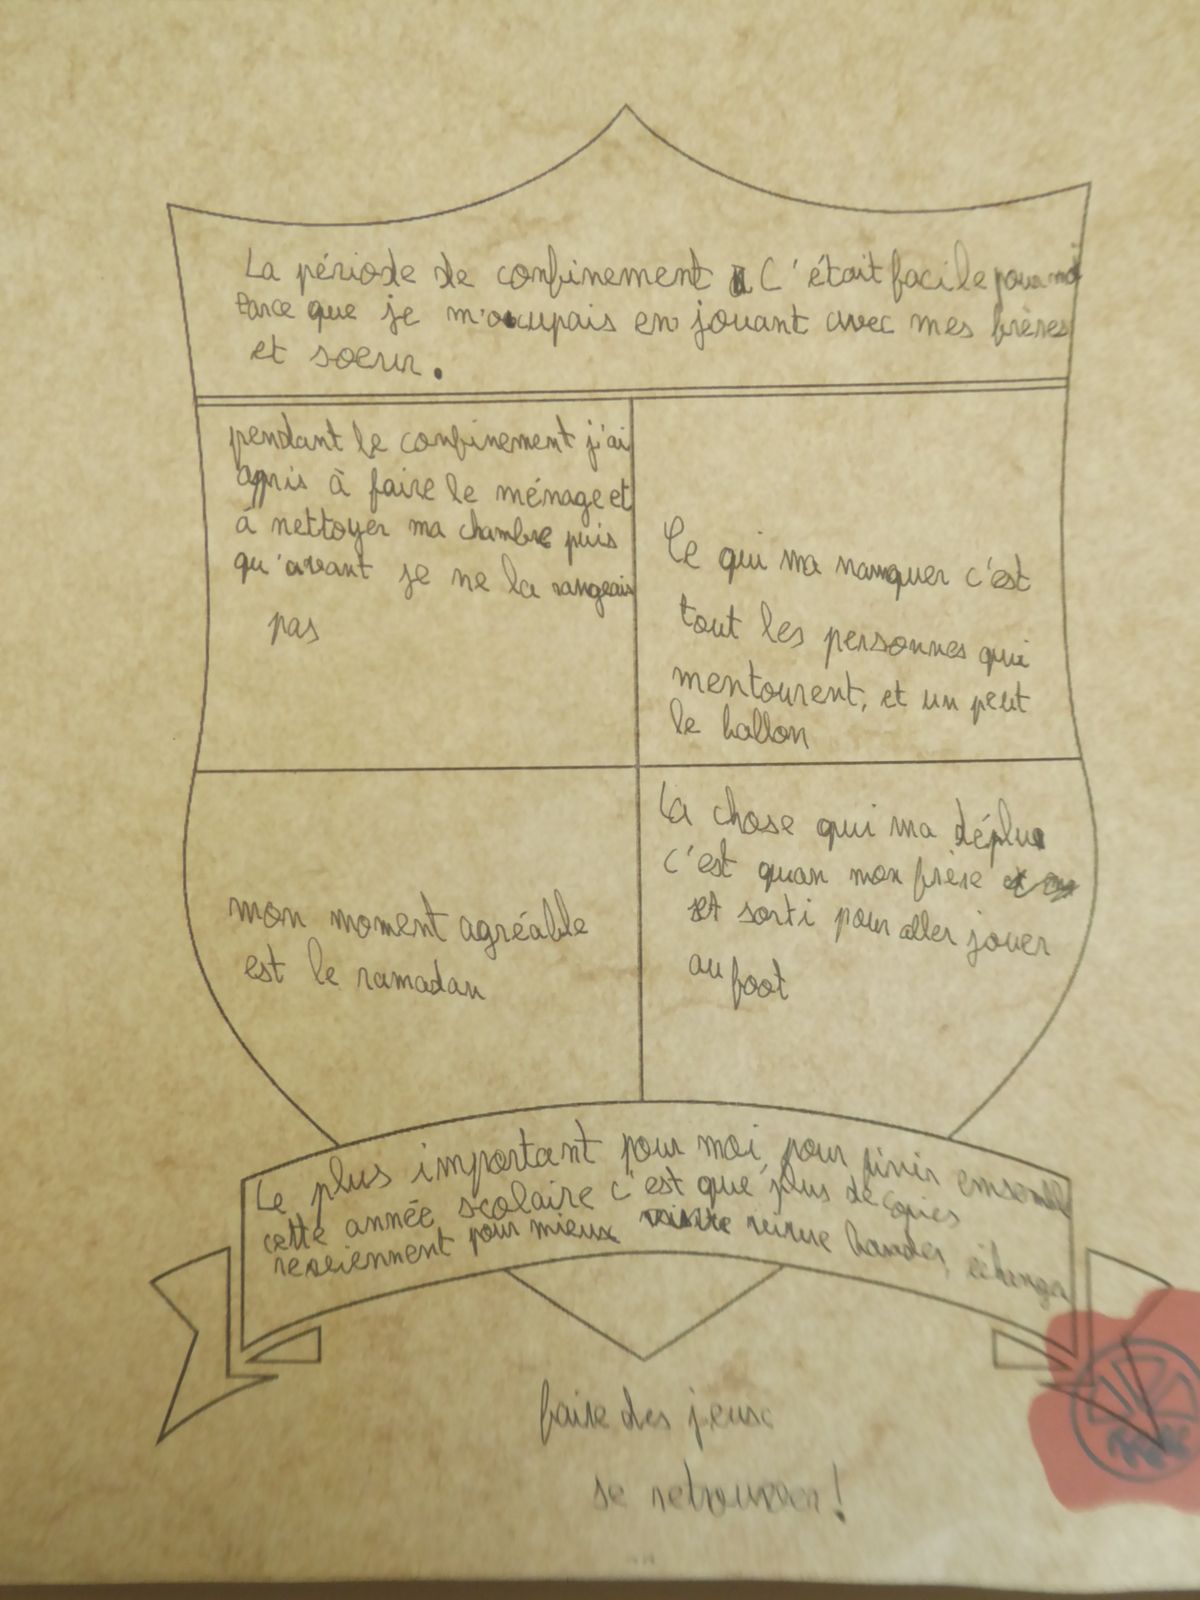 La période de confinement C'était facile pour moi
Parce que je m'occupais en jouant avec mes frères
et soeur.
pendant le confinement j'ai
appris à faire le ménage et
à nettoyer ma chambre puis
qu'avant je ne la rangeais
pas
Ce qui ma manquer c'est
tout les personnes qui
mentourent, et un peut
le ballon
mon moment agréable
est le ramadan
La chose qui ma déplu
c'est quan mon frère
et sorti pour aller jouer
au foot
Le plus important pour moi pour finir ensemble
cette année scolaire c'est que plus de copies
reviennent pour mieux vivre échanger
faire des jeux
se retrouver!